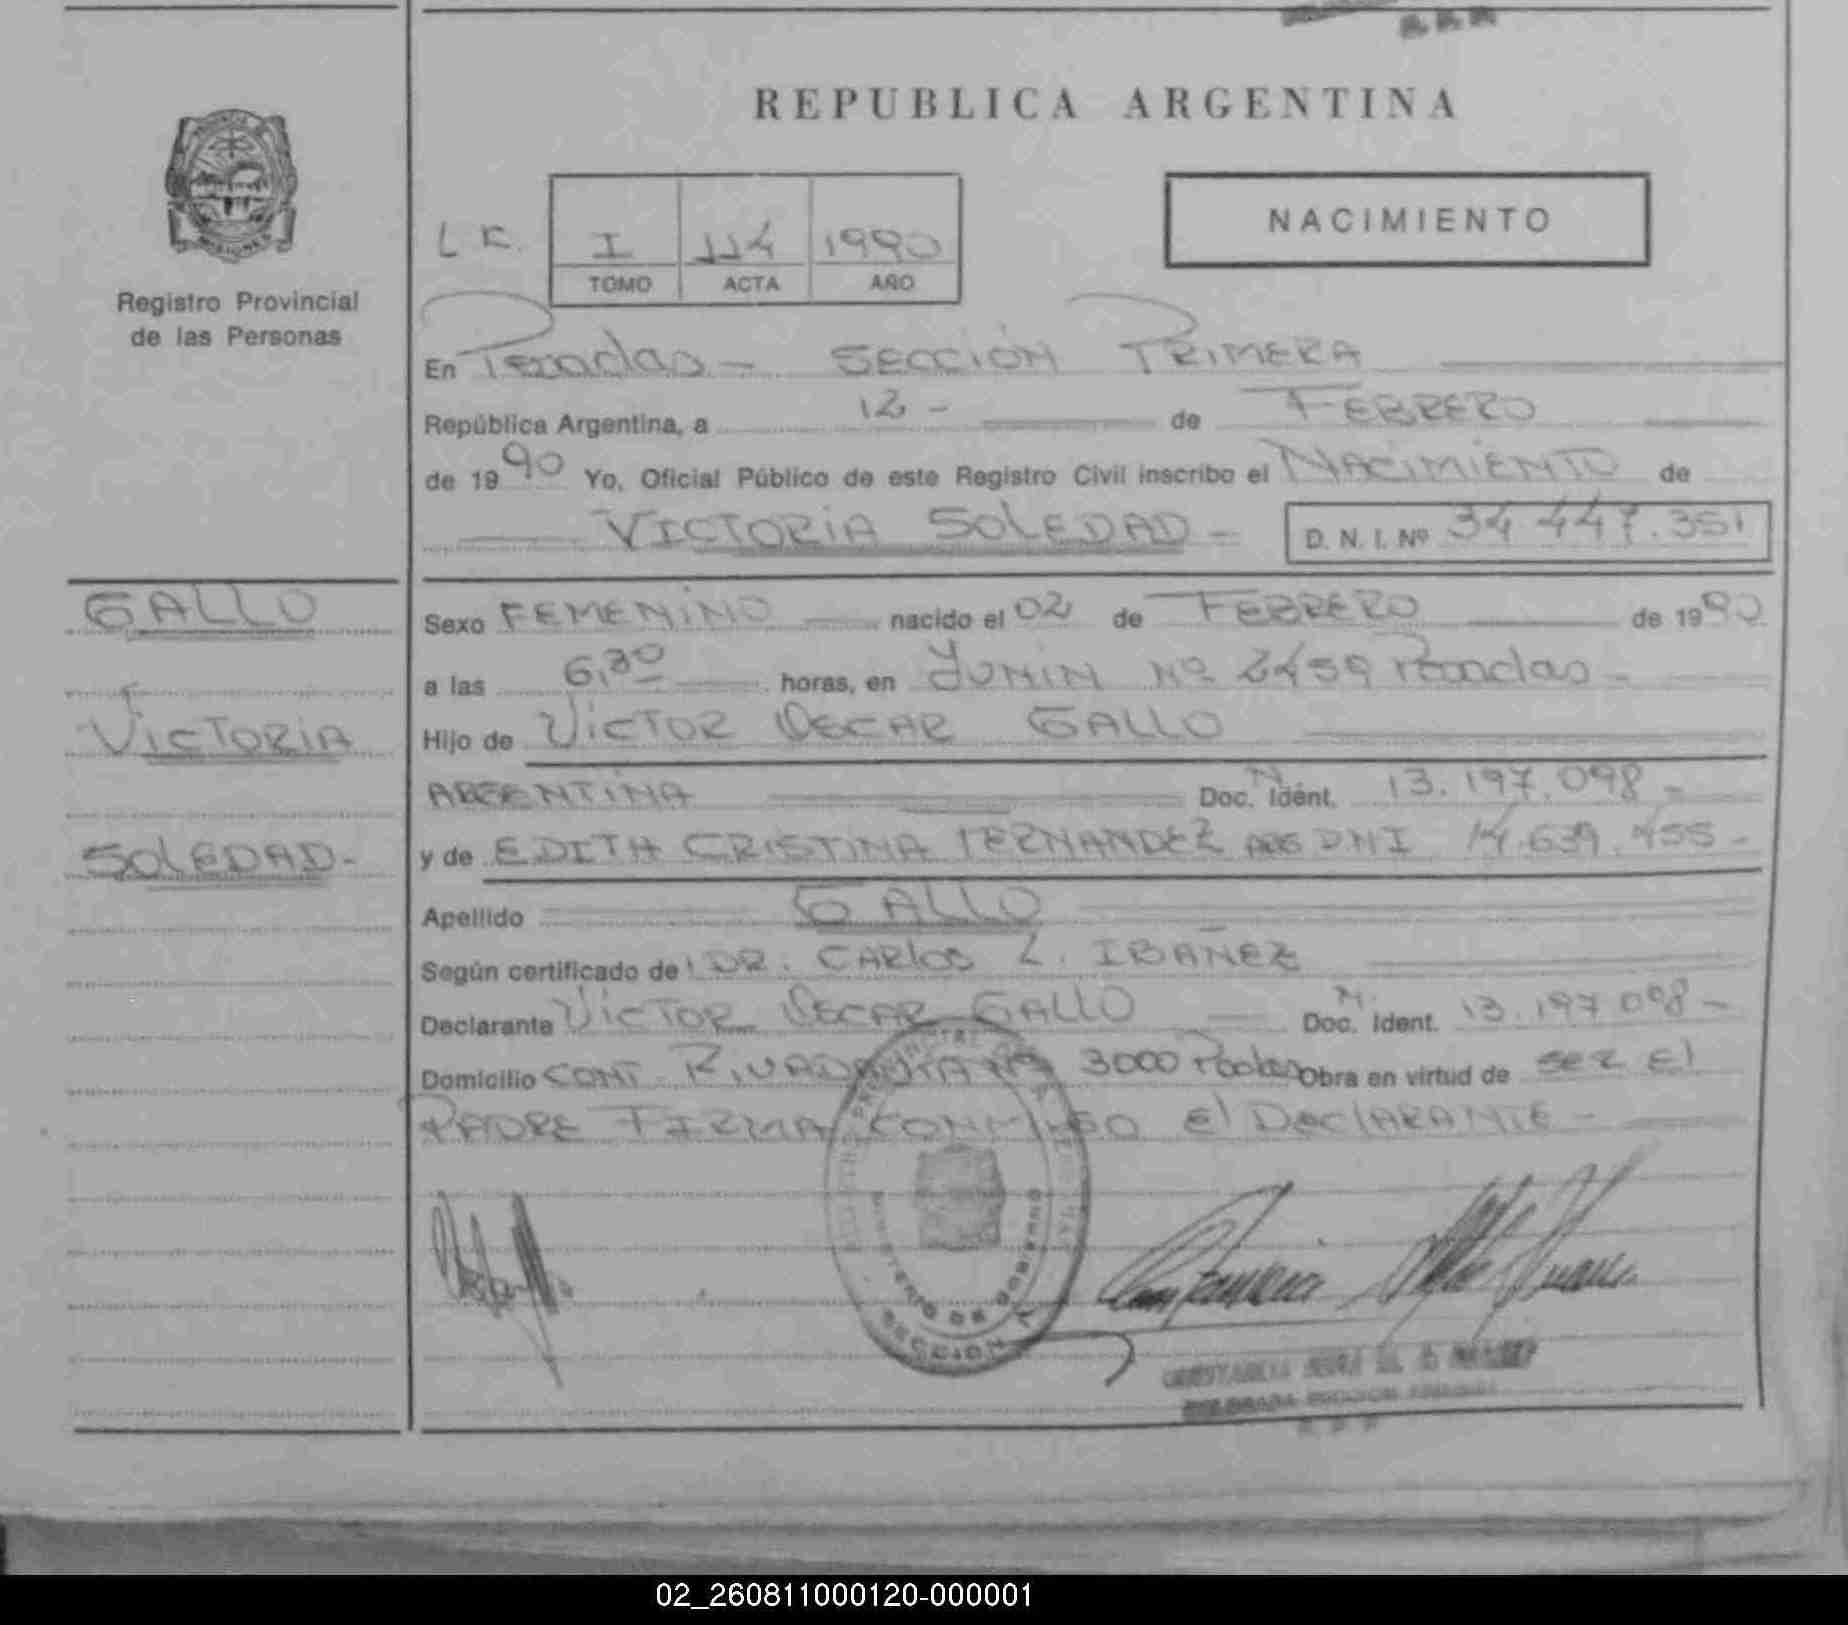 REPUBLICA ARGENTINA
NACIMIENTO
I 114 1990
TOMO ACTA AÑO
Registro Provincial
de las Personas
En Posadas - SECCION PRIMERA
República Argentina, a 12 - de FEBRERO
de 1990 Yo, Oficial Público de este Registro Civil inscribo el NACIMIENTO de
VICTORIA SOLEDAD - D. N. I. Nº 34 447.351
GALLO
VICTORIA
SOLEDAD-
Sexo FEMENINO nacido el 02 de FEBRERO de 1990
a las 6,30 horas, en JUNIN Nº 2459 Posadas -
Hijo de VICTOR OSCAR GALLO
ARGENTINA Doc. Ident. 13.197.098 -
y de EDITH CRISTINA FERNANDEZ ARG DNI 14.639.455 -
Apellido GALLO
Según certificado de DR. CARLOS L. IBAÑEZ
Declarante VICTOR OSCAR GALLO Doc. Ident. 13.197.098 -
Domicilio CONT. RIVADAVIA Nº 3000 Posadas Obra en virtud de SER El
PADRE FIRMA CONMIGO El DEClARANTE -
MINISTERIO DE GOBIERNO
SECCION
02_260811000120-000001